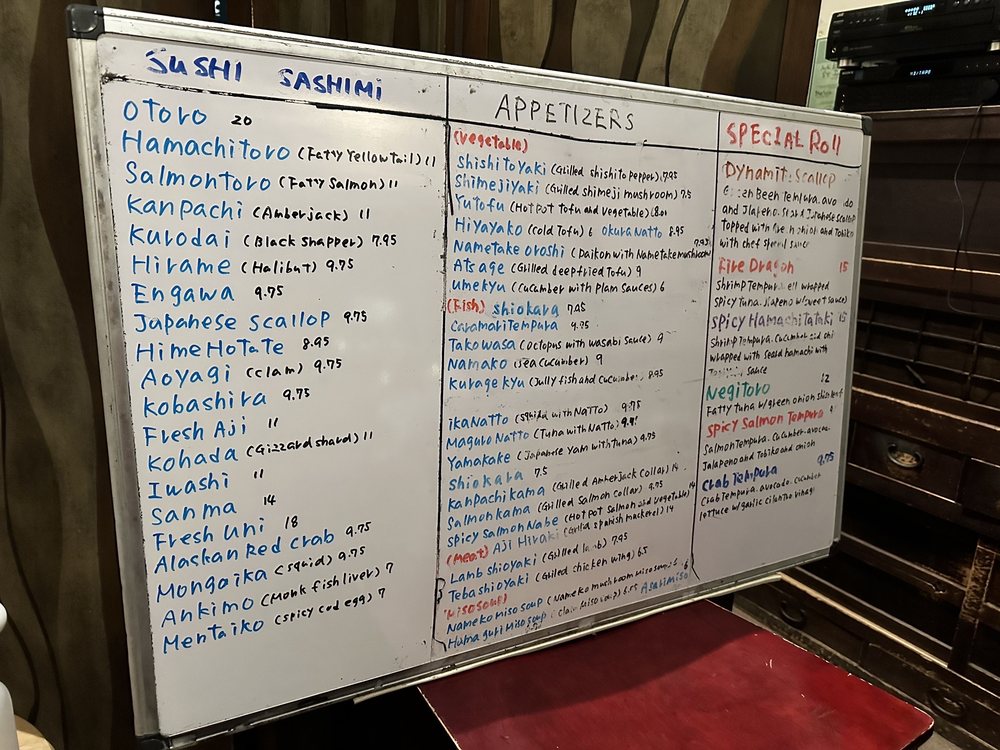 SUSHI SASHIMI
OTORO 20
Hamachitoro (Fatty Yellowtail) 11
Salmontoro (Fatty Salmon) 11
Kanpachi (Amberjack) 11
Kurodai (Black Snapper) 9.95
Hirame (Halibut) 9.75
Engawa 9.75
Japanese scallop 9.75
Hime Hotate 8.95
Aoyagi (clam) 9.75
Kobashira 9.75
Fresh Aji 11
Kohada (Gizzard shard) 11
Iwashi 11
Sanma 14
Fresh Uni 18
Alaskan Red Crab 9.75
Mongoika (squid) 9.75
Ankimo (Monk fish liver) 7
Mentaiko (spicy cod egg) 7
APPETIZERS
(Vegetable)
Shishito Yaki (Grilled shishito pepper) 7.95
Shimeji Yaki (Grilled shimeji mushroom) 7.5
Yutofu (Hot Pot Tofu and vegetable)
Hiyayako (cold Tofu) 6 okura Natto 8.95
Nametake oroshi (Daikon with Nametake mushroom
Atsage (Grilled deepfried Tofu) 9
umekyu (Cucumber with Plam Sauces) 6
(Fish) shiokara 7.25
Caramari Tempura 9.75
Takowasa (Octopus with wasabi Sauce) 9
Namako (Sea Cucumber) 9
Kurage kyu (Jully fish and Cucumber) 8.95
ika Natto (squid with Natto) 9.75
Maguro Natto (Tuna with Natto)
Yamakake (Japanese Yam with tuna) 9.75
Shiokara 7.5
Kanpachi kama (Grilled Amberjack Collar) 14
Salmon kama (Grilled Salmon Collar) 9.75
Spicy Salmon Nabe (Hot Pot Salmon and vegetable) 14
(Meat) Aji Hiraki (Grilld spanish mackerel) 14
Lamb shioyaki (Grilled lamb) 7.95
Tebashioyaki (Griled chicken wing) 6.5
(Miso soup)
Nameko Miso Soup (Nameko mushroom Miso soup) 6
Hamaguri Miso Soup (Clam Miso soup) Asari Miso 6
SPECIAL Roll
Dynamite Scallop
Green Been Tempura. avocado
and Jalapeno. Japanese Scallop
Topped with and Tobiko
with chef special sauce
Fire Dragon 15
Shrimp Tempura. ell wrapped
Spicy Tuna. Jlapeno w/ sweet Sauce)
Spicy Hamachi Tataki 15
Shrimp Tempura. Cucumber
wrapped with Seard hamachi with
Sauce
Negitoro 12
Fatty tuna w/green onion
Spicy Salmon Tempura
Salmon Tempura. Cucumber. avocado
Jalapeno and Tobiko and onion
Crab Tempura 9.75
Crab Tempura. avocado. cucumber
lettuce w/ garlic cilantro